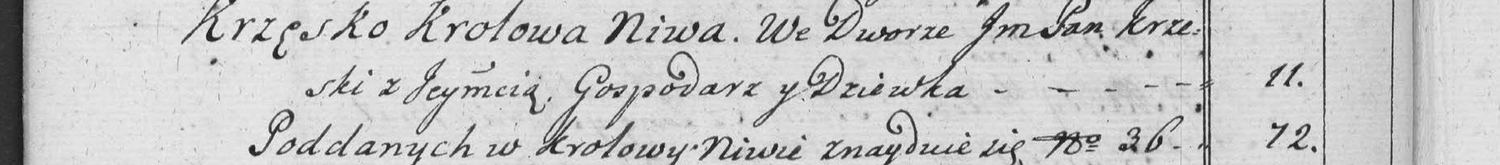 Krzęsko Krolowa Niwa. We Dworze Jm Pan Krze=
ski z Jeymcią, Gospodarz y Dziewka - - - - - 11.
Poddanych w Krolowy Niwie znayduie się No 36. - 72.